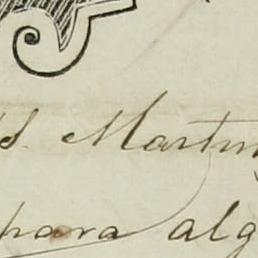 S. Martin
para alg